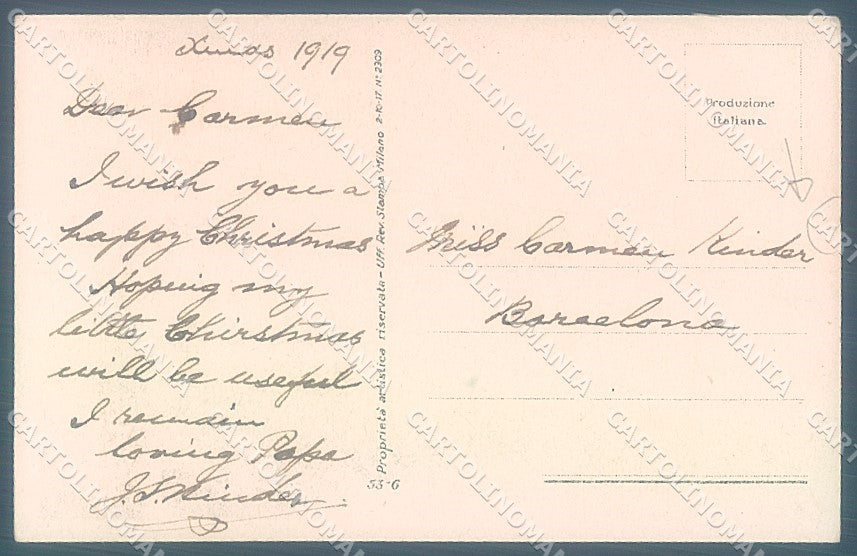 Xmas 1919
Dear Carmen
I wish you a
happy Christmas
Hoping my
little Chirstmas
will be useful
I remain
loving Papa
J. S. Kinder
Proprietà artistica riservata - Uff. Rev. Stampa Milano 2-10-17 N° 2309
53-6
Produzione
italiana.
Miss Carmen Kinder
Barcelona
CARTOLINOMANIA